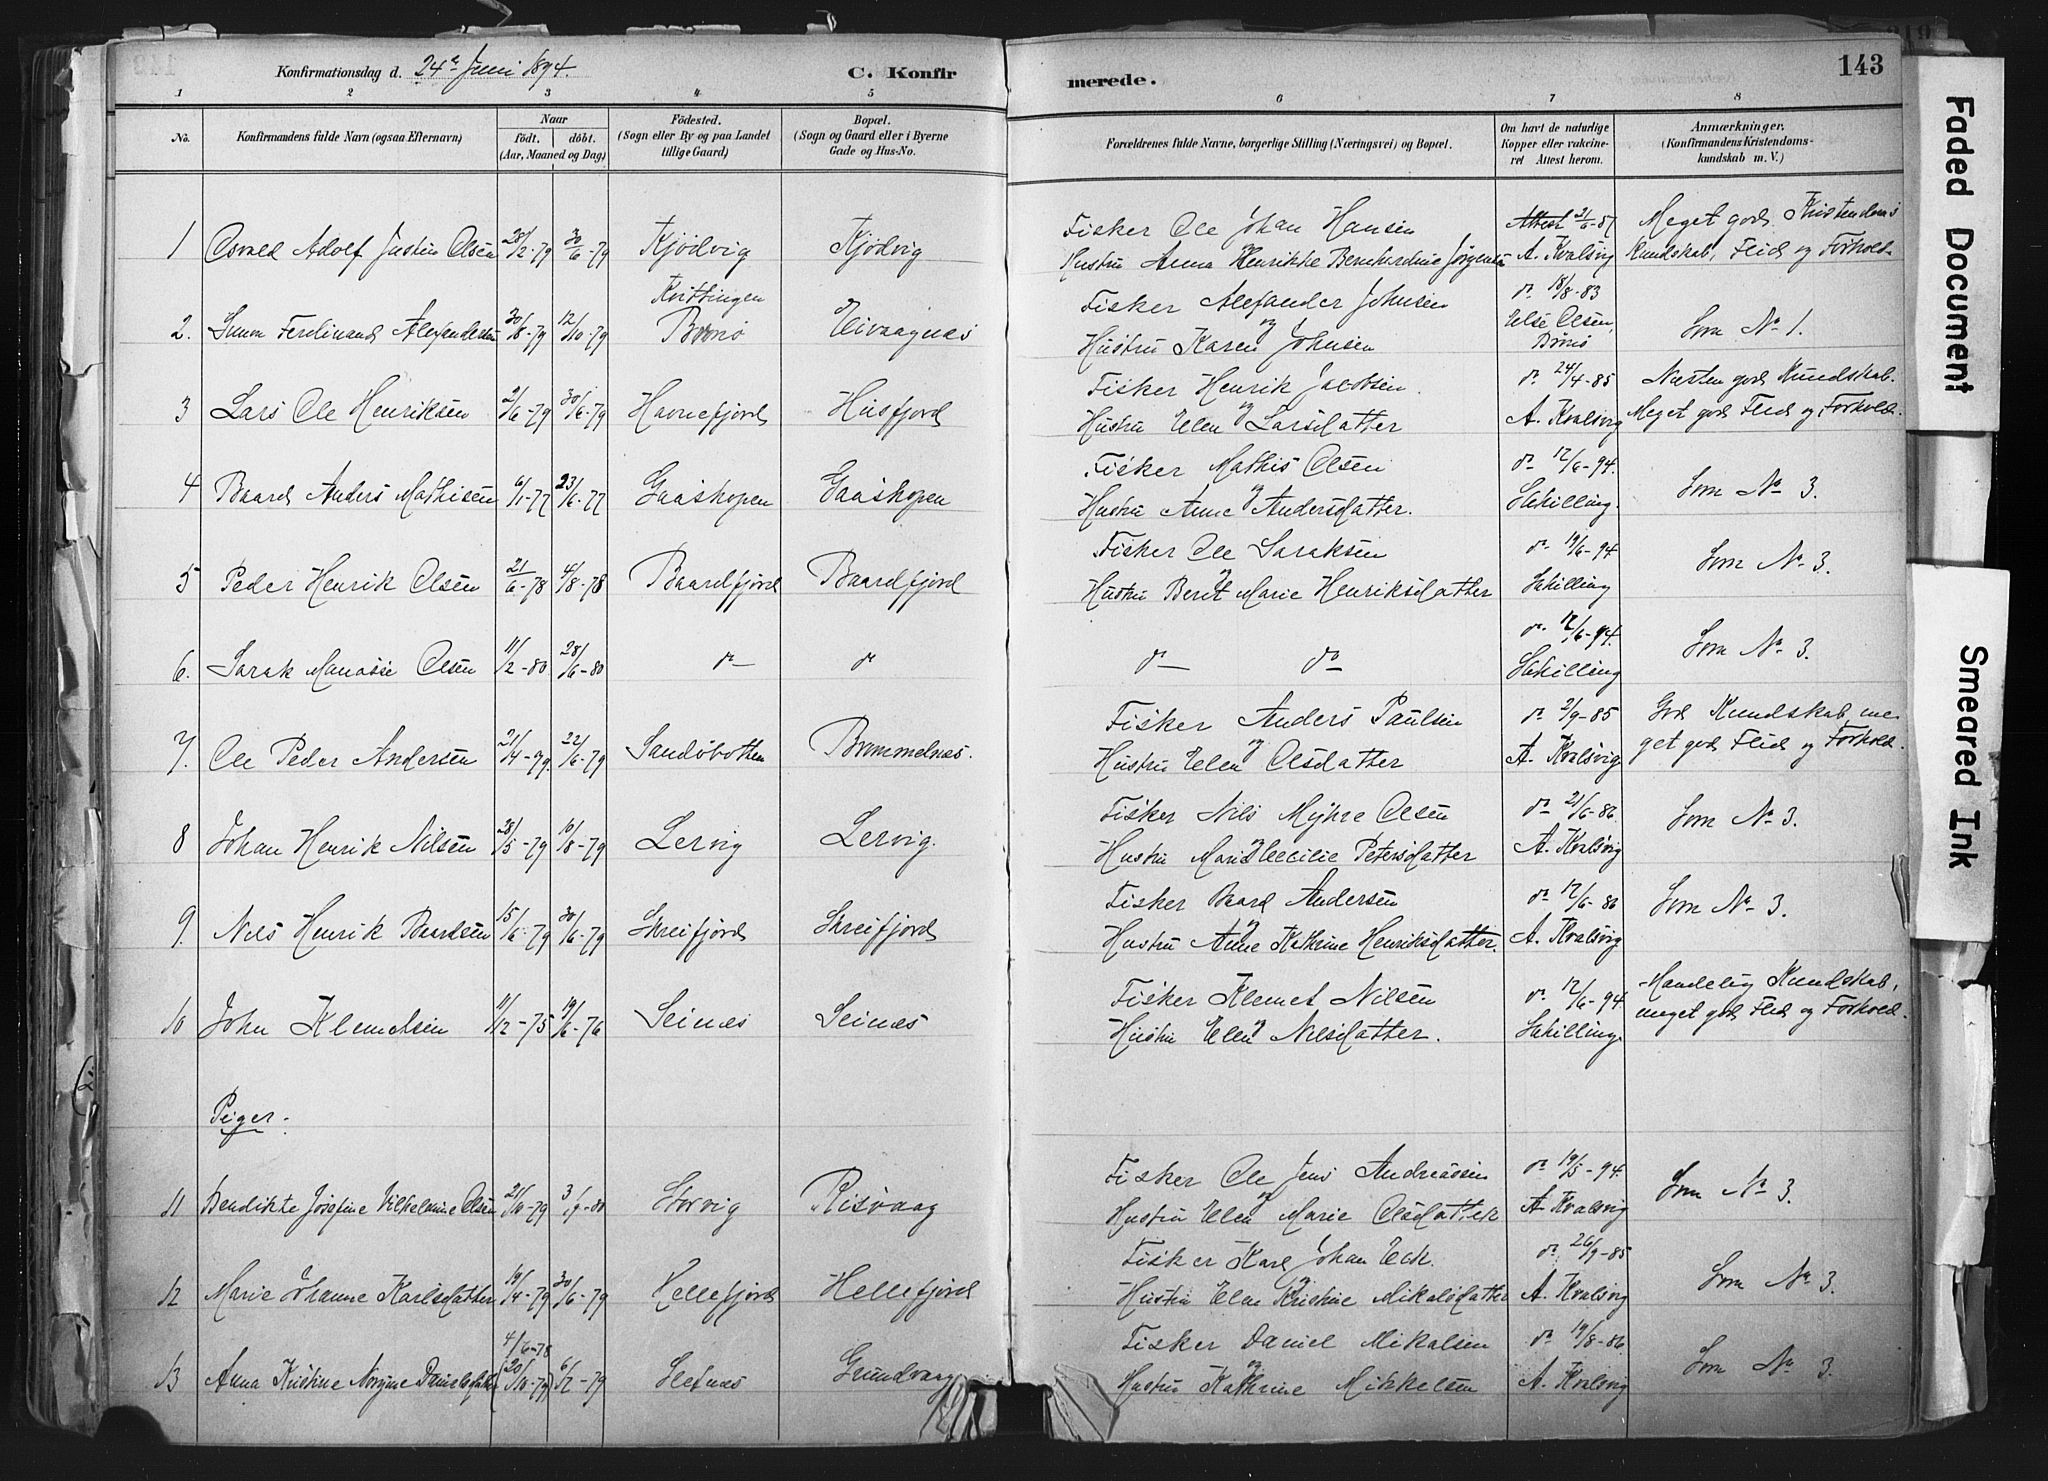 Konfirmationsdag d. 24de Juni 1894. C. Konfirmerede. 143
1 2 3 4 5 6 7 8
No. Konfirmandens fulde Navn (ogsaa Efternavn) Naar födt. döbt. (Aar, Maaned og Dag) Födested. (Sogn eller By og paa Landet tillige Gaard) Bopæl. (Sogn og Gaard eller i Byerne Gade og Hus-No. Forældrenes fulde Navne, borgerlige Stilling (Næringsvei) og Bopæl. Om havt de naturlige Kopper eller vakcineret Attest herom. Anmærkninger. (Konfirmandens Kristendomskundskab m. V.)
Fisker Ole Johan Hansen Attest 21/6-87 Meget god Kristendoms
1 Osvald Adolf Justin Olsen 28/2-79 30/6-79 Kjödvig Kjödvig Hustru Anna Henrikke Bernhardine Jörgensen A. Kvalsvig Kundskab, Flid og Forhold.
Kvittingen Fisker Alexander Johnsen do 18/8-83
2. Simon Ferdinand Alexandersen 30/8-79 12/10-79 Bornö Eivaagnæs og Hustru Karen Johnsen Else Olsen, Börnö Som No 1.
Fisker Henrik Jacobsen do 24/4-85 Næsten god Kundskab.
3 Lars Ole Henriksen 2/6-79 30/6-79 Havnefjord Husfjord og Hustru Elen Larsdatter A. Kvalsvig Meget god Flid og Forhold.
Fisker Mathis Olsen do 12/6-94.
4 Baard Anders Mathisen 6/1-77 23/6-77 Gaashopen Gaashopen og Hustru Anne Andersdatter. Schilling. Som No 3.
Fisker Ole Saraksen do 19/6-94
5 Peder Henrik Olsen 21/6-78 4/8-78 Baardfjord Baardfjord og Hustru Berit Marie Henriksdatter Schilling Som No 3.
do 12/6-94.
6. Sarak Manasse Olsen 11/2-80 28/6-80 do do do do Schilling Som No 3.
Fisker Anders Paulsen do 2/9-85 God Kundskab, me-
7. Ole Peder Andersen 21/4-79. 22/6-79 Sandöbotten Brommelnæs. og Hustru Elen Olsdatter A. Kvalsvig get god Flid og Forhold.
Fisker Nils Myhre Olsen do 21/6-86.
8 Johan Henrik Nilsen 28/5-79 10/8-79 Lervig Lervig. og Hustru Marie Cecilie Petersdatter A. Kvalsvig Som No 3.
Fisker Baard Andersen do 12/6-86
9. Nils Henrik Baardsen 15/6-79 30/6-79 Skreifjord Skreifjord og Hustru Anne Kathrine Henriksdatter. A. Kvalsvig Som No 3.
Fisker Klemet Nilsen do 12/6-94. Maadelig Kundskab,
10 John Klemetsen 11/12-75 19/6-76 Seinæs Seinæs og Hustru Elen Nilsdatter. Schilling. meget god Flid og Forhold.
Piger.
Fisker Ole Jens Andreassen do 19/5-94.
11 Bendikte Josefine Vilhelmine Olsen 21/10-79 3/9-80 Storvig Risvaag og Hustru Elen Marie Olsdatter A Kvalsvig Som No 3.
Fisker Karl Johan Eck. do 26/9-85
12 Marie Johanne Karlsdatter 19/4-79 30/6-79 Hellefjord Hellefjord og Hustru Elen Kristine Mikalsdatter A. Kvalsvig Som No 3.
4/6-78 Fisker Daniel Mikalsen do 19/8-86.
13 Anna Kristine Danielsdatter (20/10-79) 6/2-79 Slefnæs Grundvaag og Hustru Kathrine Mikkelsen A. Kvalsvig Som No 3.
Faded Document
Smeared Ink